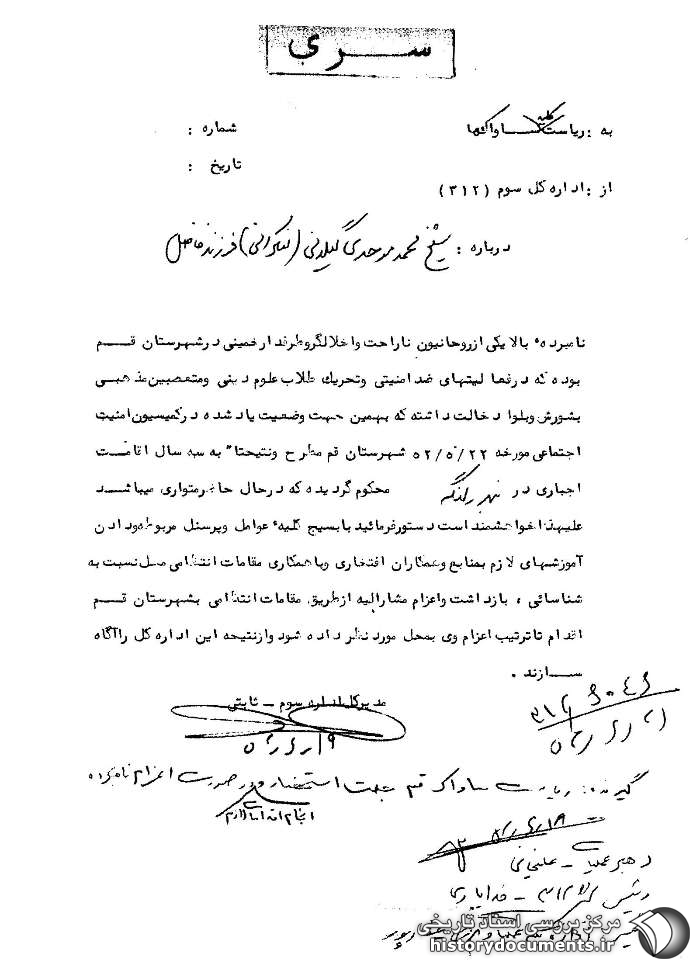 سری
به : ریاست کلیه ساواکها
شماره :
تاریخ :
از : اداره کل سوم (۳۱۲)
درباره : شیخ محمد موحدی گیلانی (لنکرانی) فرزند فاضل
نامبرده بالا یکی از روحانیون ناراحت و اخلالگر و طرفدار خمینی در شهرستان قم
بوده که در فعالیتهای ضد امنیتی و تحریک طلاب علوم دینی و متعصبین مذهبی
بشورش و بلوا دخالت داشته که بهمین جهت وضعیت یاد شده در کمیسیون امنیت
اجتماعی مورخه ۵۲/۵/۲۲ شهرستان قم مطرح و نتیجتا" به سه سال اقامت
اجباری در محکوم گردیده که در حال حاضر متواری میباشد
علیهذا خواهشمند است دستور فرمائید با بسیج کلیه عوامل و پرسنل مربوطه و دادن
آموزشهای لازم بمنابع و همکاران افتخاری و با همکاری مقامات انتظامی محل نسبت به
شناسائی ، بازداشت و اعزام مشارالیه از طریق مقامات انتظامی بشهرستان قم
اقدام تا ترتیب اعزام وی بمحل مورد نظر داده شود و از نتیجه این اداره کل را آگاه
سازند .
مدیر کل اداره سوم - ثابتی
گیرنده : ریاست ساواک قم جهت استحضار و در صورت اعزام نامبرده
انجام اقدامات لازم
رهبر عملیات -
مرکز بررسی اسناد تاریخی
historydocuments.ir